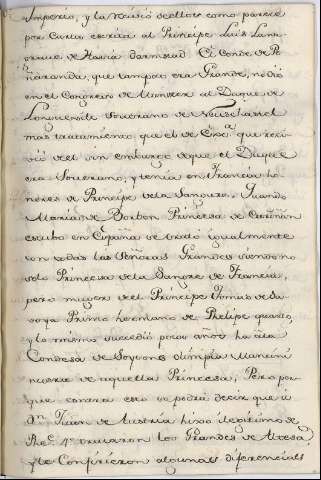 Imperio, y la recivió de ellos como parece
por Carta escrita al Principe Luis Lant-
grave de Hasia darmstad El Conde de Pe
ñaranda, que tampoco era Grande, no dió
en el Congreso de Munster al Duque de
Longueville Soverano de Neuschastel
mas tratamiento, que el de Exc.ª que reci-
vió de el sin embargo de que el Duque
era Soverano, y tenia en Francia ho-
nores de Principe de la Sangre. Quando
Maria de Borbon Princesa de Cariñan
estubo en España se trató igualmente
con todas las Señoras Grandes siendo no
solo Princesa de la Sangre de Francia,
pero muger del Principe Tomas de Sa-
voya Primo hermano de Phelipe quarto,
y lo mismo sucedió pocos años ha á la
Condesa de Soysons Olimpia Mancini
nuera de aquella Princesa, Pero por-
que contra esto se podrá decir que á
dn. Juan de Austria hixo ilegitimo de
Phe. 4º trataron los Grandes de Alteza,
y le Confirieron algunas diferencias